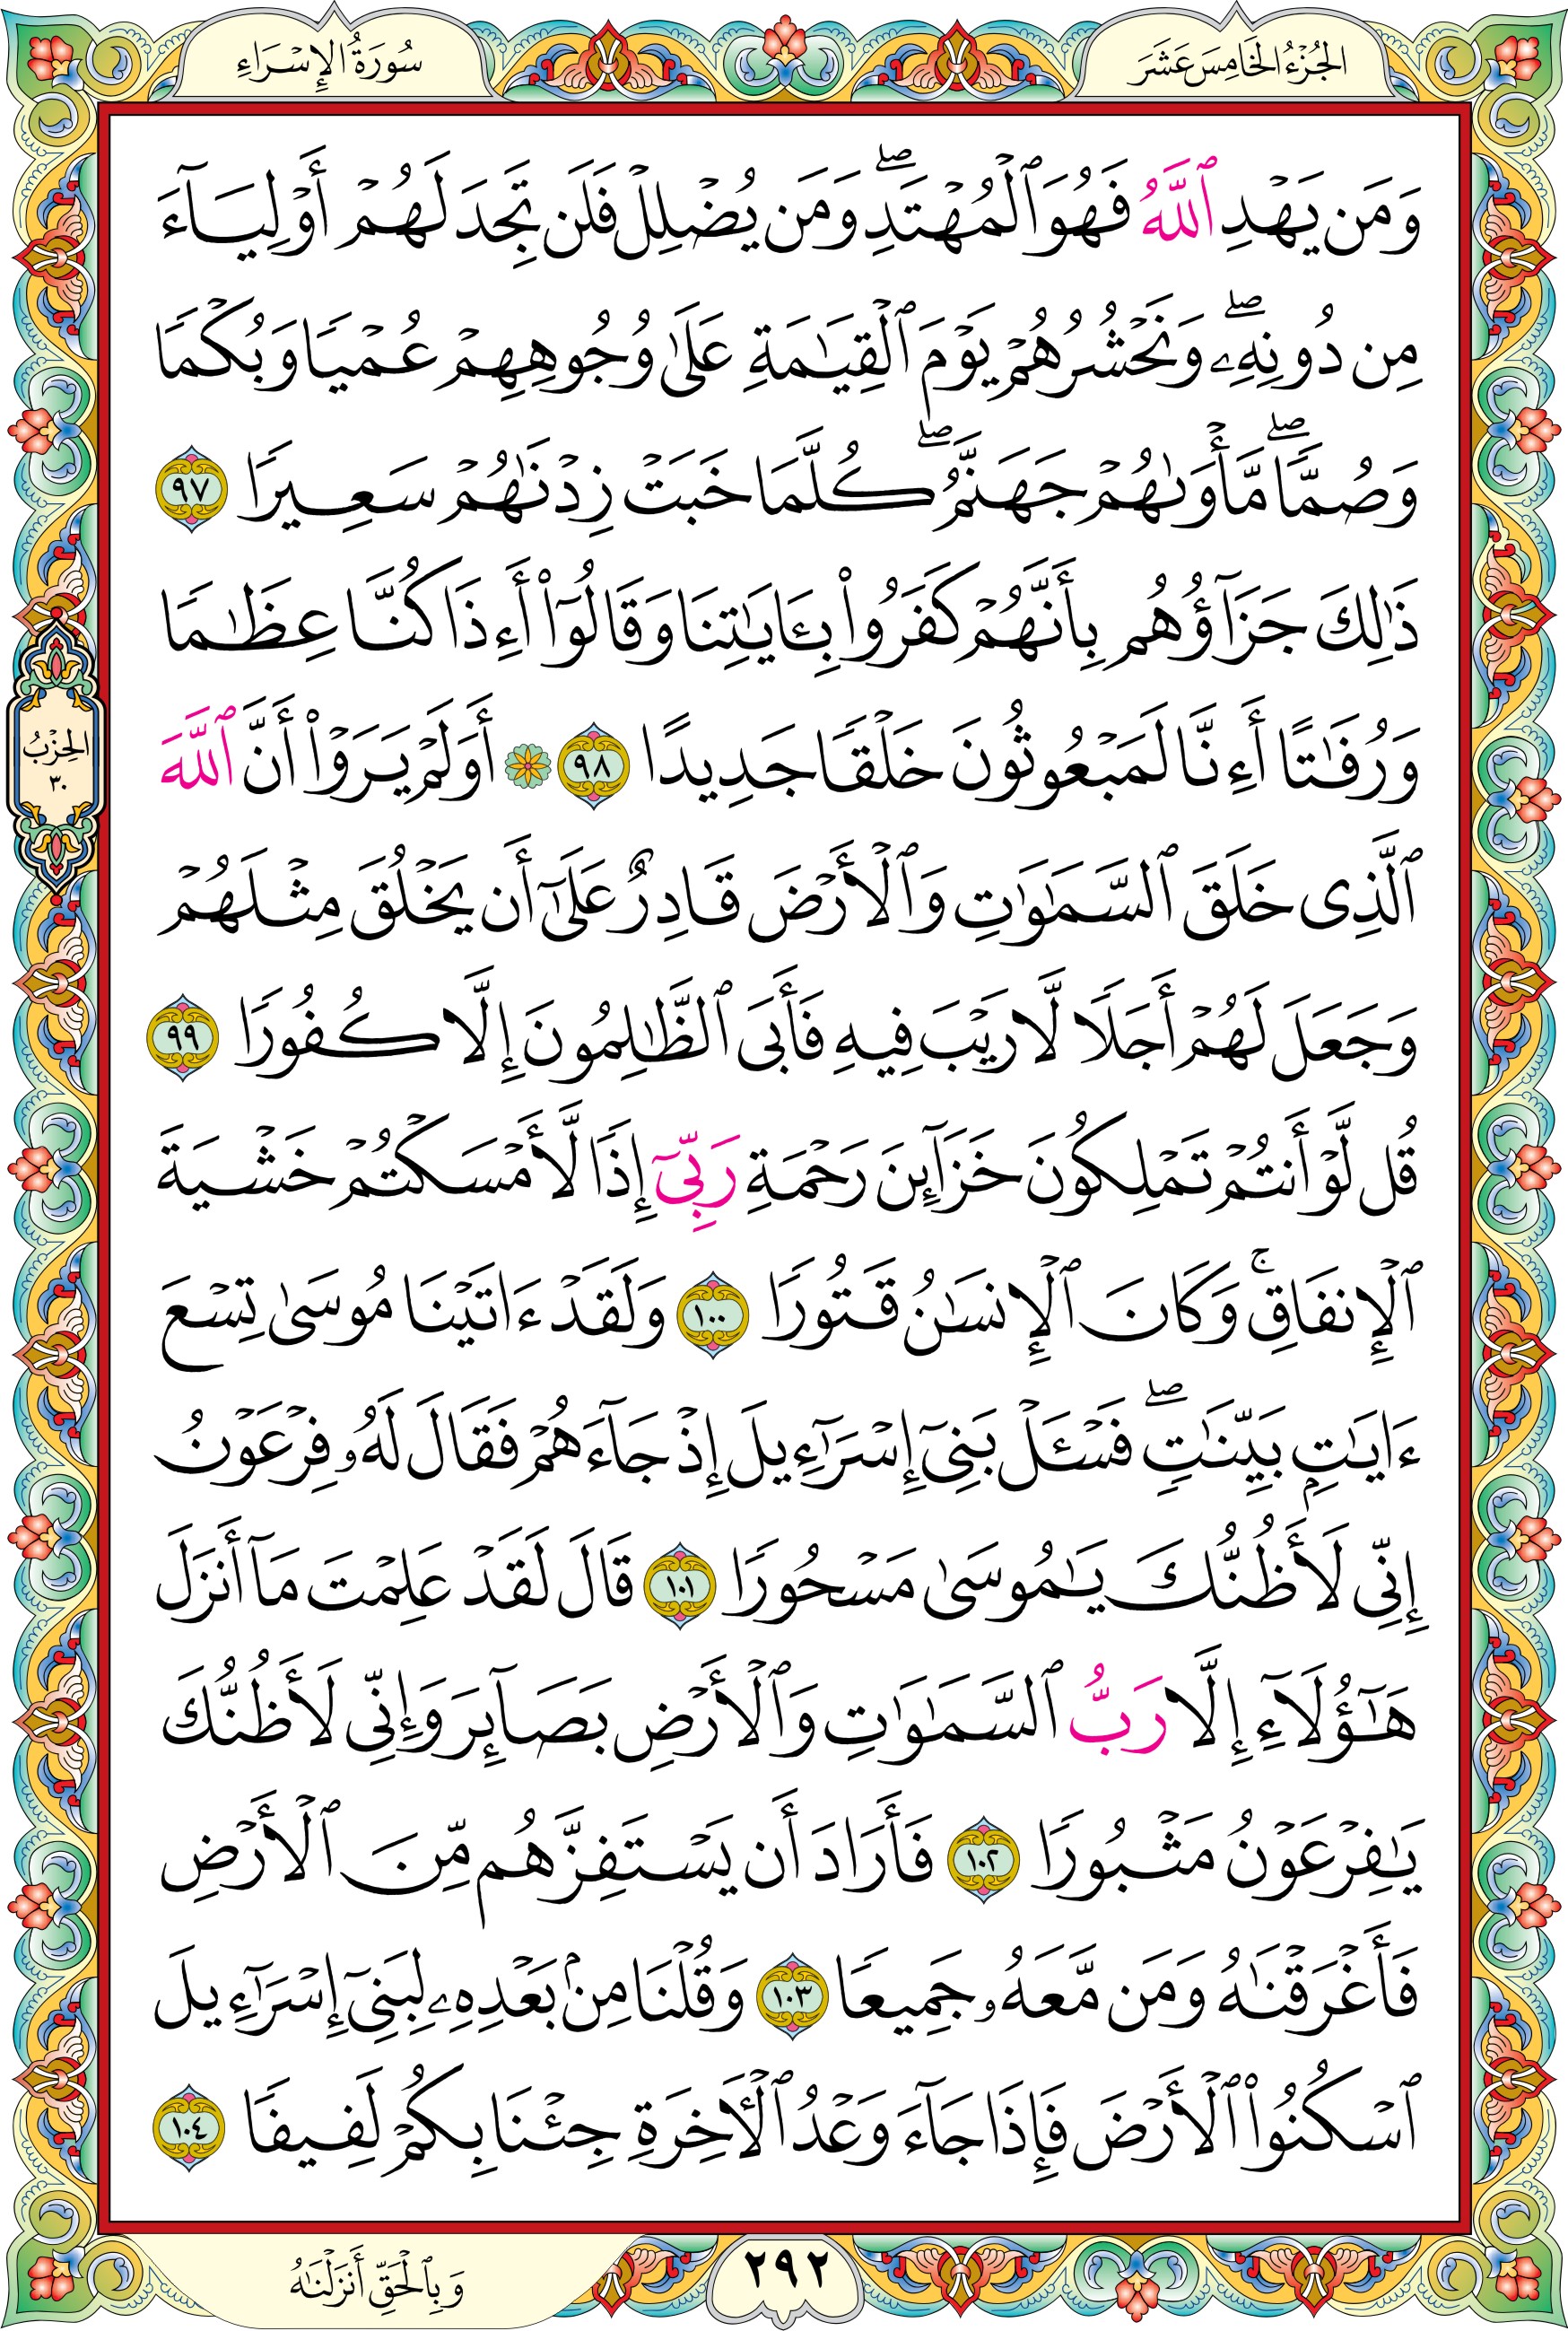 الجُزْءُ الخَامِسَ عَشَرَ
سُورَةُ الإِسْرَاءِ
وَمَن يَهْدِ ٱللَّهُ فَهُوَ ٱلْمُهْتَدِۖ وَمَن يُضْلِلْ فَلَن تَجِدَ لَهُمْ أَوْلِيَآءَ
مِن دُونِهِۦۖ وَنَحْشُرُهُمْ يَوْمَ ٱلْقِيَٰمَةِ عَلَىٰ وُجُوهِهِمْ عُمْيًا وَبُكْمًا
وَصُمًّاۖ مَّأْوَىٰهُمْ جَهَنَّمُۖ كُلَّمَا خَبَتْ زِدْنَٰهُمْ سَعِيرًا ٩٧
ذَٰلِكَ جَزَآؤُهُم بِأَنَّهُمْ كَفَرُوا۟ بِـَٔايَٰتِنَا وَقَالُوٓا۟ أَءِذَا كُنَّا عِظَٰمًا
وَرُفَٰتًا أَءِنَّا لَمَبْعُوثُونَ خَلْقًا جَدِيدًا ٩٨ ۞ أَوَلَمْ يَرَوْا۟ أَنَّ ٱللَّهَ
ٱلَّذِى خَلَقَ ٱلسَّمَٰوَٰتِ وَٱلْأَرْضَ قَادِرٌ عَلَىٰٓ أَن يَخْلُقَ مِثْلَهُمْ
وَجَعَلَ لَهُمْ أَجَلًا لَّا رَيْبَ فِيهِ فَأَبَى ٱلظَّٰلِمُونَ إِلَّا كُفُورًا ٩٩
قُل لَّوْ أَنتُمْ تَمْلِكُونَ خَزَآئِنَ رَحْمَةِ رَبِّىٓ إِذًا لَّأَمْسَكْتُمْ خَشْيَةَ
ٱلْإِنفَاقِۚ وَكَانَ ٱلْإِنسَٰنُ قَتُورًا ١٠٠ وَلَقَدْ ءَاتَيْنَا مُوسَىٰ تِسْعَ
ءَايَٰتٍۭ بَيِّنَٰتٍۖ فَسْـَٔلْ بَنِىٓ إِسْرَٰٓءِيلَ إِذْ جَآءَهُمْ فَقَالَ لَهُۥ فِرْعَوْنُ
إِنِّى لَأَظُنُّكَ يَٰمُوسَىٰ مَسْحُورًا ١٠١ قَالَ لَقَدْ عَلِمْتَ مَآ أَنزَلَ
هَٰٓؤُلَآءِ إِلَّا رَبُّ ٱلسَّمَٰوَٰتِ وَٱلْأَرْضِ بَصَآئِرَ وَإِنِّى لَأَظُنُّكَ
يَٰفِرْعَوْنُ مَثْبُورًا ١٠٢ فَأَرَادَ أَن يَسْتَفِزَّهُم مِّنَ ٱلْأَرْضِ
فَأَغْرَقْنَٰهُ وَمَن مَّعَهُۥ جَمِيعًا ١٠٣ وَقُلْنَا مِنۢ بَعْدِهِۦ لِبَنِىٓ إِسْرَٰٓءِيلَ
ٱسْكُنُوا۟ ٱلْأَرْضَ فَإِذَا جَآءَ وَعْدُ ٱلْءَاخِرَةِ جِئْنَا بِكُمْ لَفِيفًا ١٠٤
الحِزْبُ
٣٠
٢٩٢
وَبِٱلْحَقِّ أَنزَلْنَٰهُ